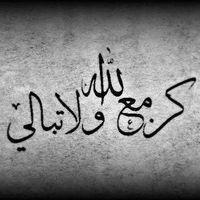 كن مع الله ولا تبالي